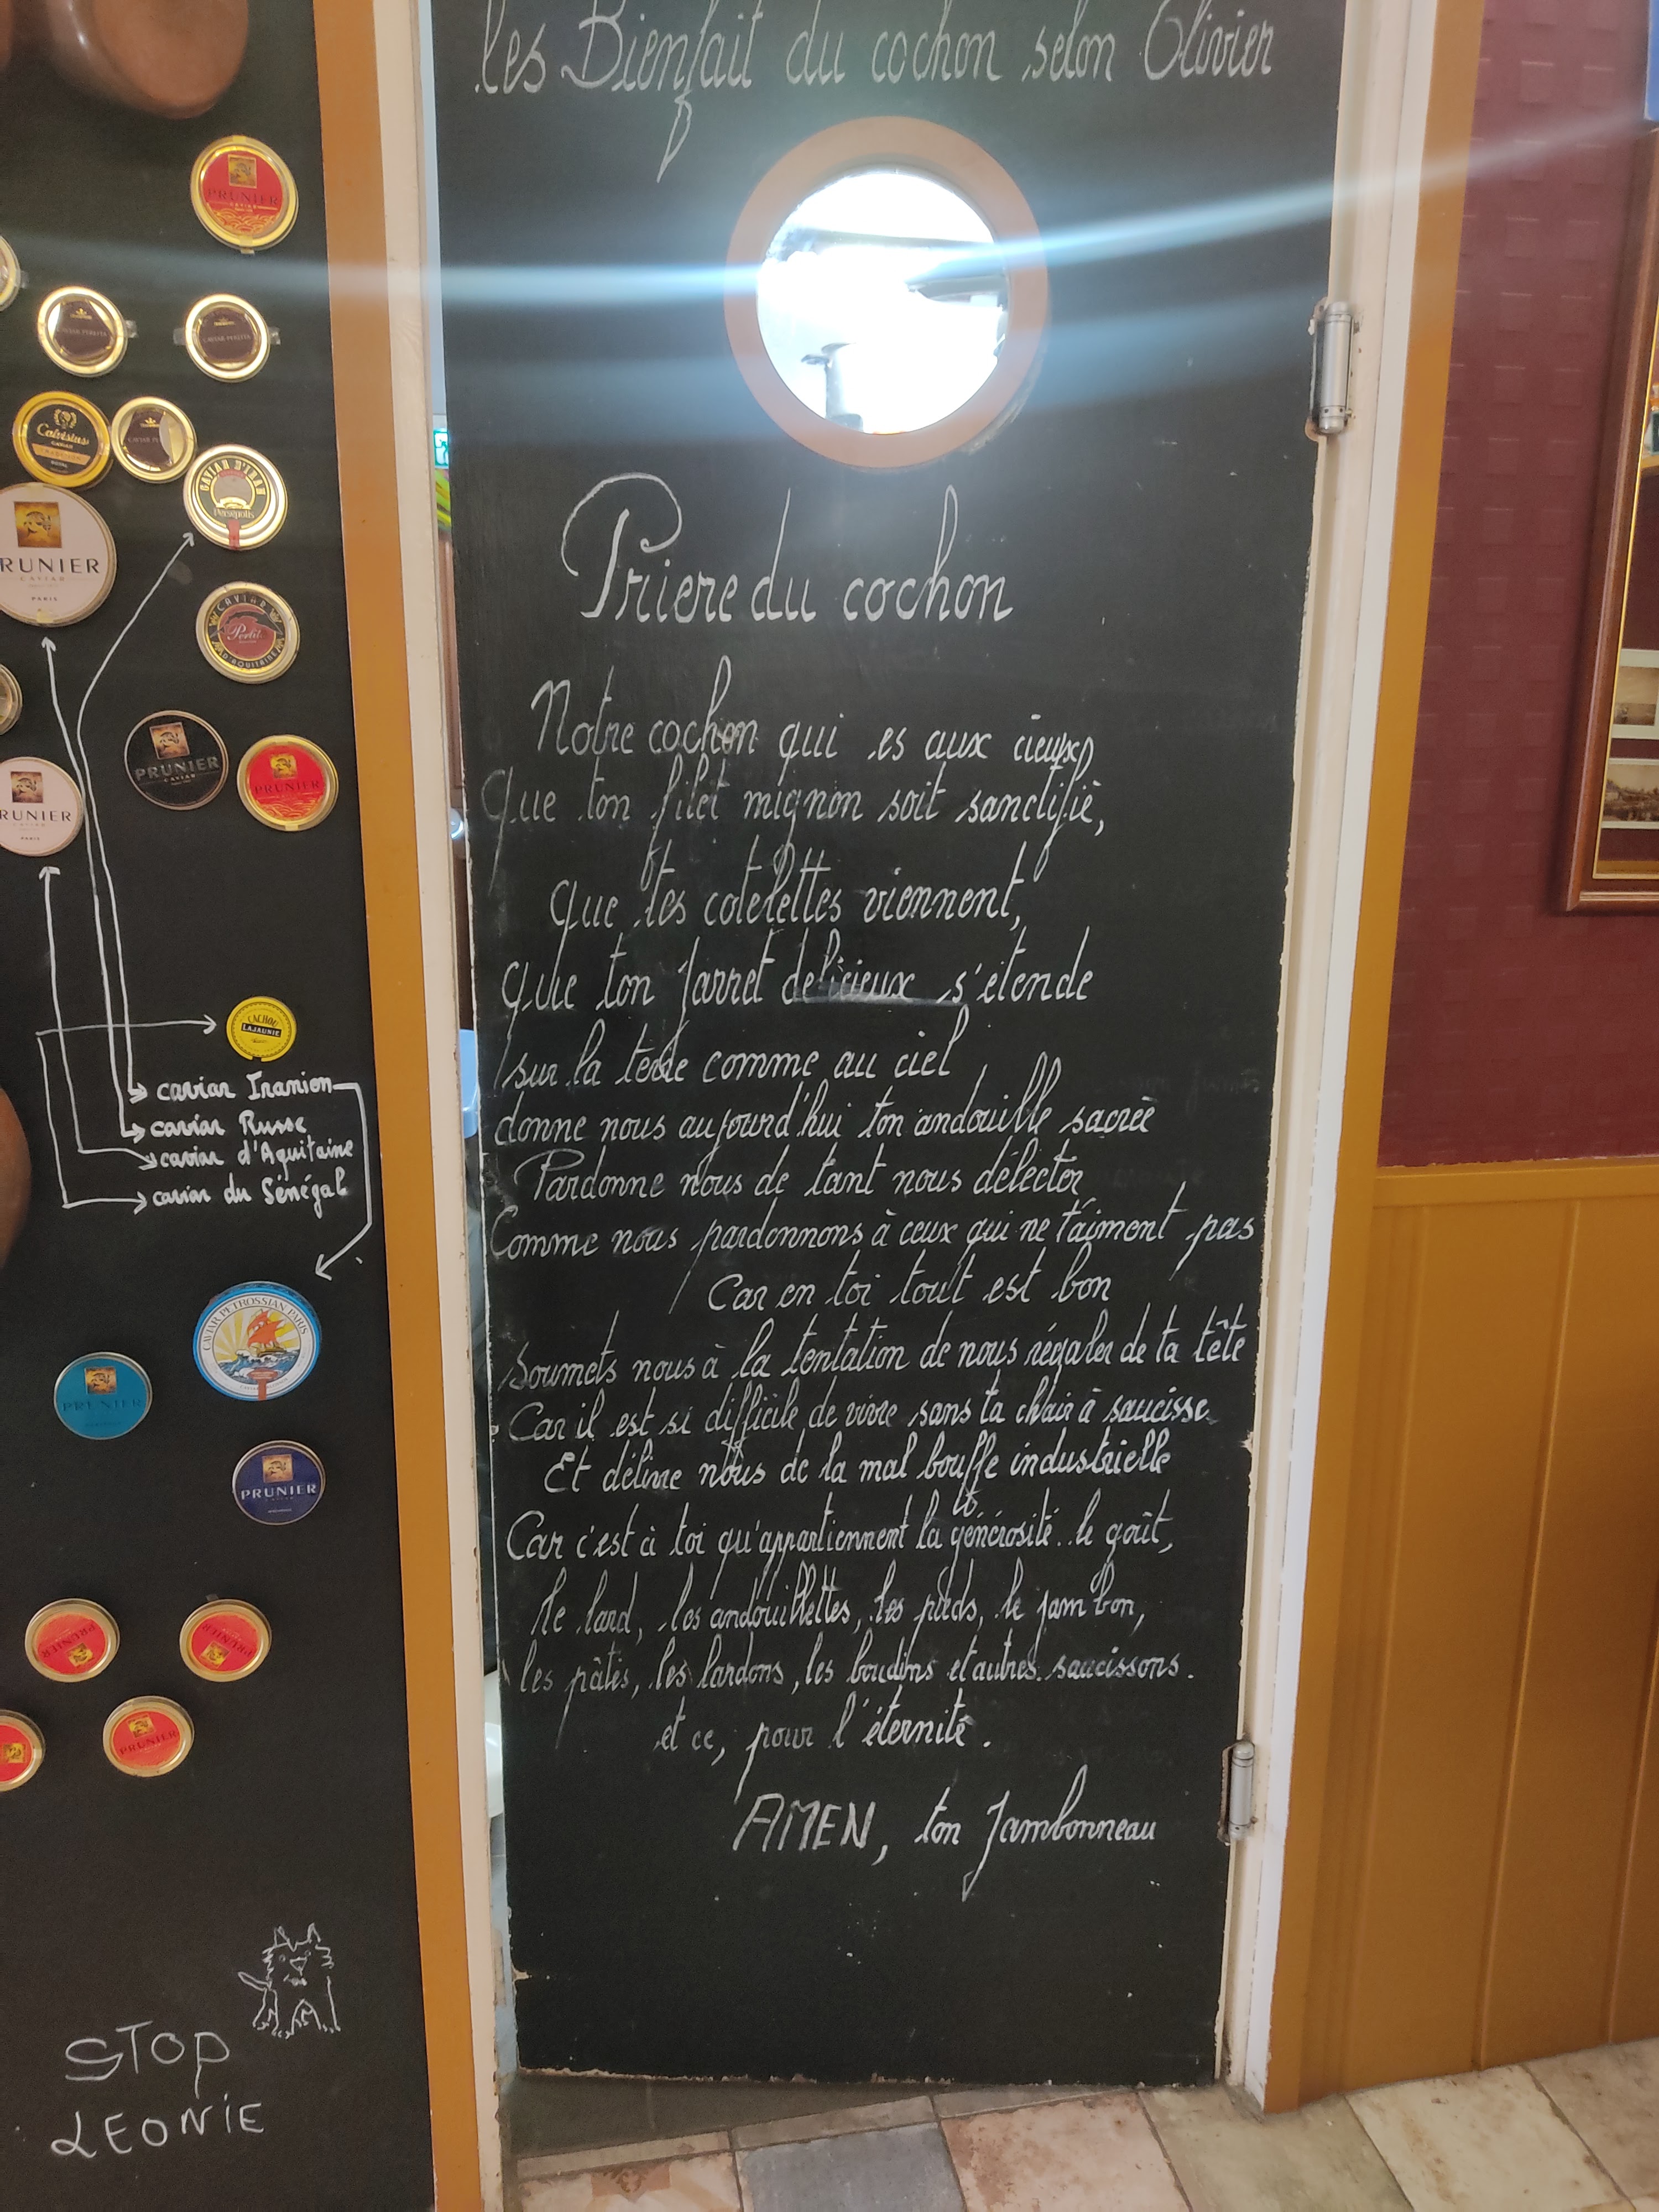 les Bienfait du cochon selon Olivier
PRUNIER
CAVIAR PERLITA
CAVIAR PERLITA
Calvisius
CAVIAR
CAVIAR D'IRAN
Persepolis
RUNIER
CAVIAR
PARIS
CAVIAR
Perlita
D'AQUITAINE
PRUNIER
CAVIAR
PRUNIER
RUNIER
CAVIAR
PARIS
CACHOU
LAJAUNIE
caviar Iranien
caviar Russe
caviar d'Aquitaine
caviar du Sénégal
CAVIAR PETROSSIAN PARIS
PRUNIER
PRUNIER
CAVIAR
PRUNIER
PRUNIER
PRUNIER
STOP
LEONIE
Priere du cochon
Notre cochon qui es aux cieux,
Que ton filet mignon soit sanctifié,
Que tes cotelettes viennent,
Que ton Jarret delicieux s'étende
sur la terre comme au ciel
donne nous aujourd'hui ton andouille sacrée
Pardonne nous de tant nous délecter
Comme nous pardonnons à ceux qui ne t'aiment pas
Car en toi tout est bon
Soumets nous à la tentation de nous régaler de ta tête
Car il est si difficile de vivre sans ta chair à saucisse
Et délivre nous de la mal bouffe industrielle
Car c'est à toi qu'appartiennent la générosité.. le goût,
le lard, les andouillettes, les pieds, le jambon,
les pâtés, les lardons, les boudins et autres saucissons.
et ce, pour l'éternité.
AMEN, ton Jambonneau